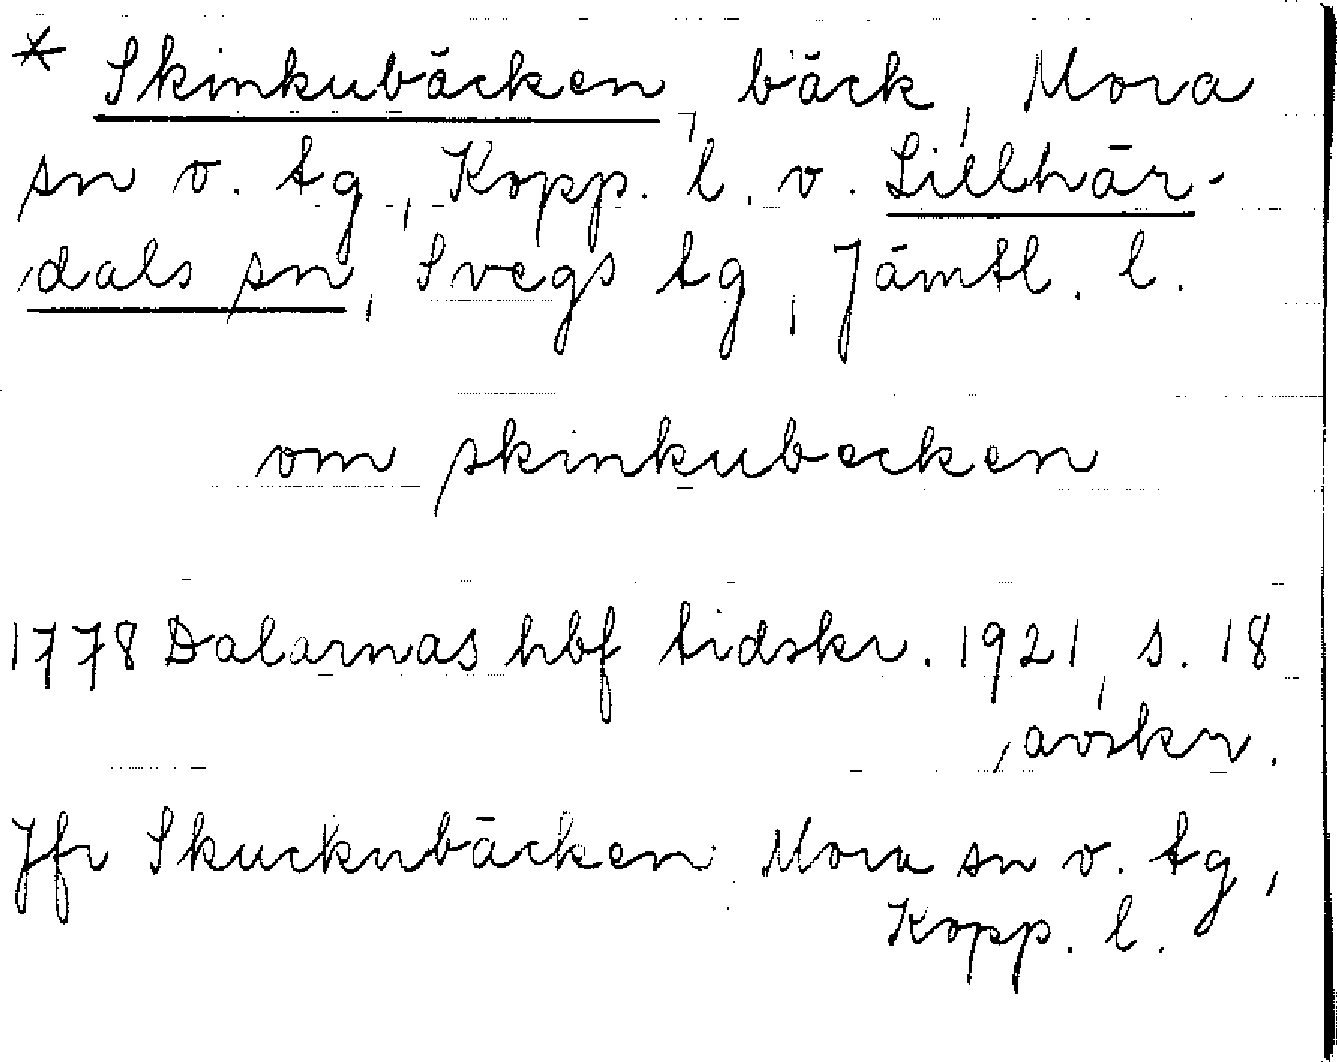 * Skinkubäcken, bäck, Mora
sn o. tg, Kopp. l. o. Lillhär-
dals sn, Svegs tg, Jämtl. l.
om skinkubecken
1778 Dalarnas hbf tidskr. 1921, s. 18
avskr.
Jfr Skuckubäcken Mora sn o. tg,
Kopp. l.